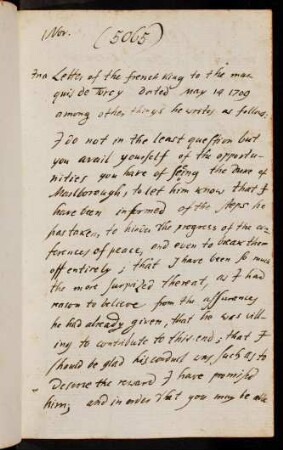 1 Nov.
(5065)
In a Letter of the french king to the mar
quis de Torcy dated May 14 1709
among other things he writes as follows;
I do not in the least question but
you avail yourself of the opportu-
nities you have of seeing the Duke of
Marlborough, to let him know that I
have been informed of the steps he
has taken, to hinder the progress of the con
ferences of peace, and even to break them
off entirely; that I have been so much
the more surprized thereat, as I had
reason to believe from the assurances
he had already given, that he was will
ing to contribute to this end; that I
should be glad his conduct was such as to
deserve the reward I have promised
him; and in order that you may be able